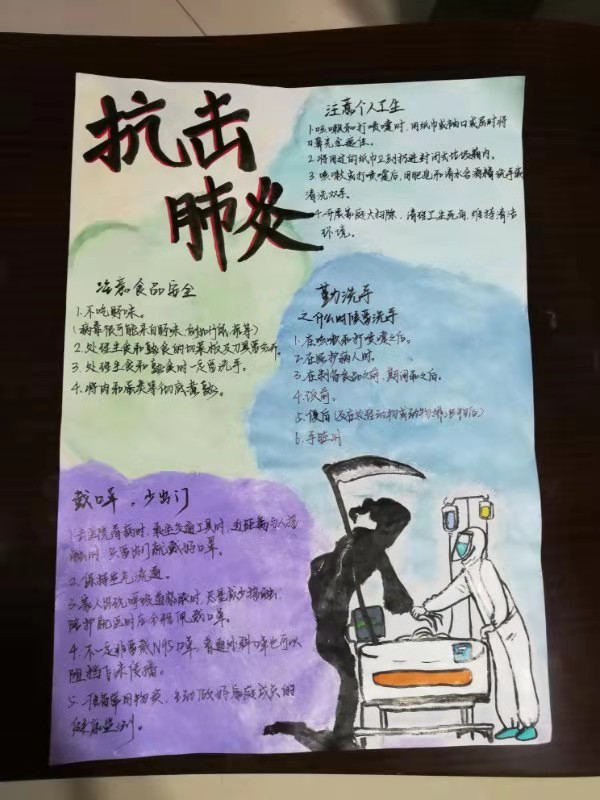 抗击
肺炎
注意个人卫生
1.咳嗽和打喷嚏时,用纸巾或袖口或屈肘将
口鼻完全遮住。
2.将用过的纸巾立刻扔进封闭式垃圾箱内。
3.咳嗽或打喷嚏后,用肥皂和清水或
清洗双手。
4.开展家庭大扫除,清理卫生死角,维持清洁
环境。
注意食品安全
1.不吃野味。
(病毒很可能来自野味
2.处理生食和熟食的切菜板及刀具要分开。
3.处理生食和熟食时一定要洗手。
4.将肉和蛋类等彻底煮熟。
勤洗手
之什么时候要洗手
1.在咳嗽和打喷嚏之后。
2.在照护病人时。
3.在制备食品之前、期间和之后。
4.饭前。
5.便后
6.手脏时
戴口罩,少出门
1.去医院看病时,乘坐交通工具时,近距离与人接
触时,只要出门就戴好口罩。
2.保持空气流通。
3.家人出现呼吸道症状时,尽量减少接触,
照护配送时应全程佩戴口罩。
4.不一定非要戴N95口罩,普通外科口罩也可以
阻挡飞沫传播。
5.准备常用物资,主动做好家庭成员的
健康监测。